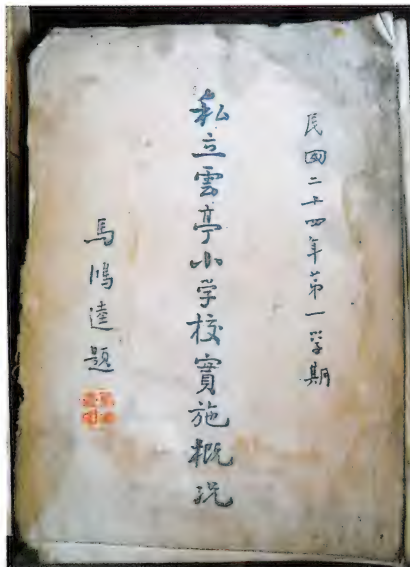 民囯二十四年第一学期
私立雲亭小学校實施概况
馬鴻逵題